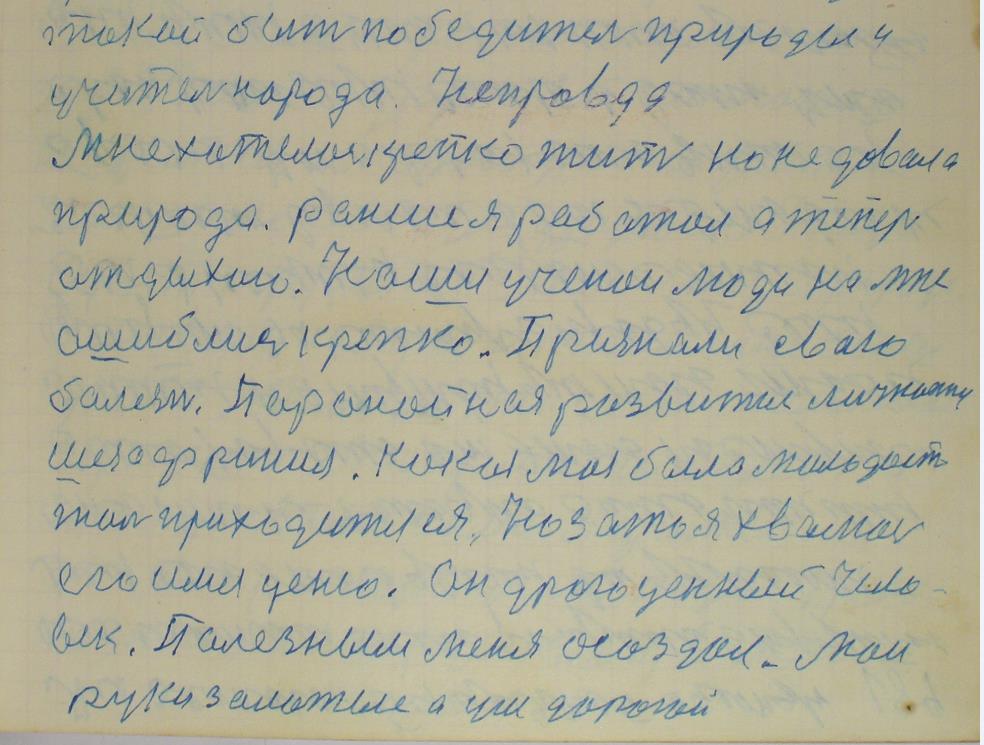 такой быт победител природы и
учител народа. Неправда
Мне хателос крепко жит но не довала
природа. Раньше я работал а тепер
атдыхаю. Наши ученои люди на мне
ошиблис крепко. Признали сваю
балезн. Параной ная развитие личности
шизафриния. Какая моя была
приходится. Но за это я
его имя ценю. Он драгоценный чело-
век. Палезным меня осоздал. Мои
руки залатые а ум дорогой